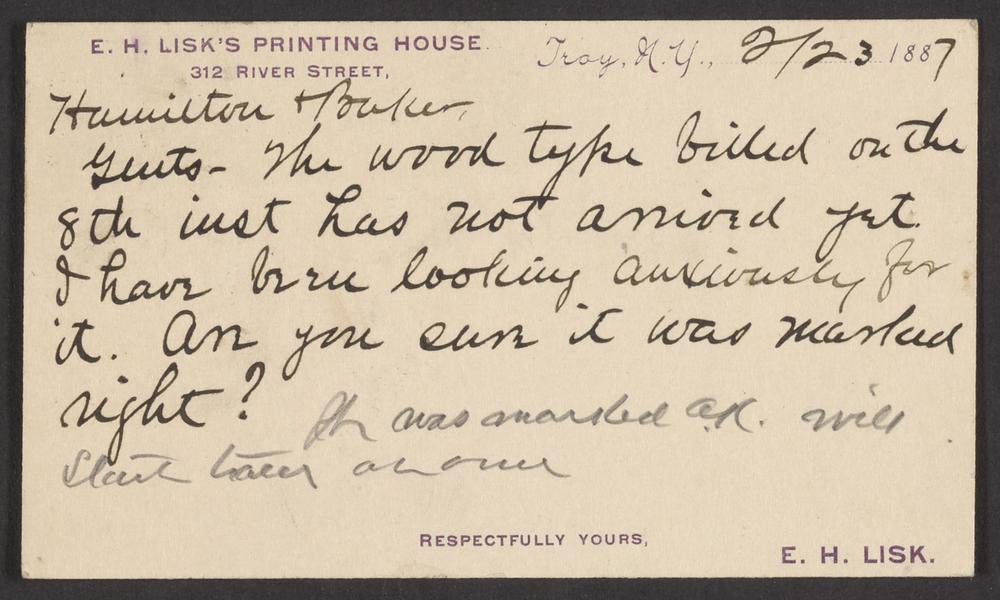 E. H. LISK'S PRINTING HOUSE
312 RIVER STREET,
Troy, N.Y., 2/23 1887
Hamilton & Baker,
Gents- The wood type billed on the
8th inst has not arrived yet.
I have been looking anxiously for
it. Are you sure it was marked
right?
It was marked O.K. will
start tracer at once
RESPECTFULLY YOURS,
E. H. LISK.